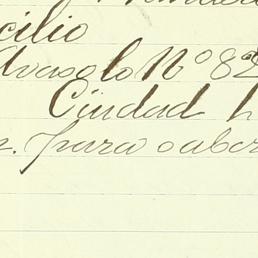 cilio
Arasolo Nº 82
Ciudad
para saber